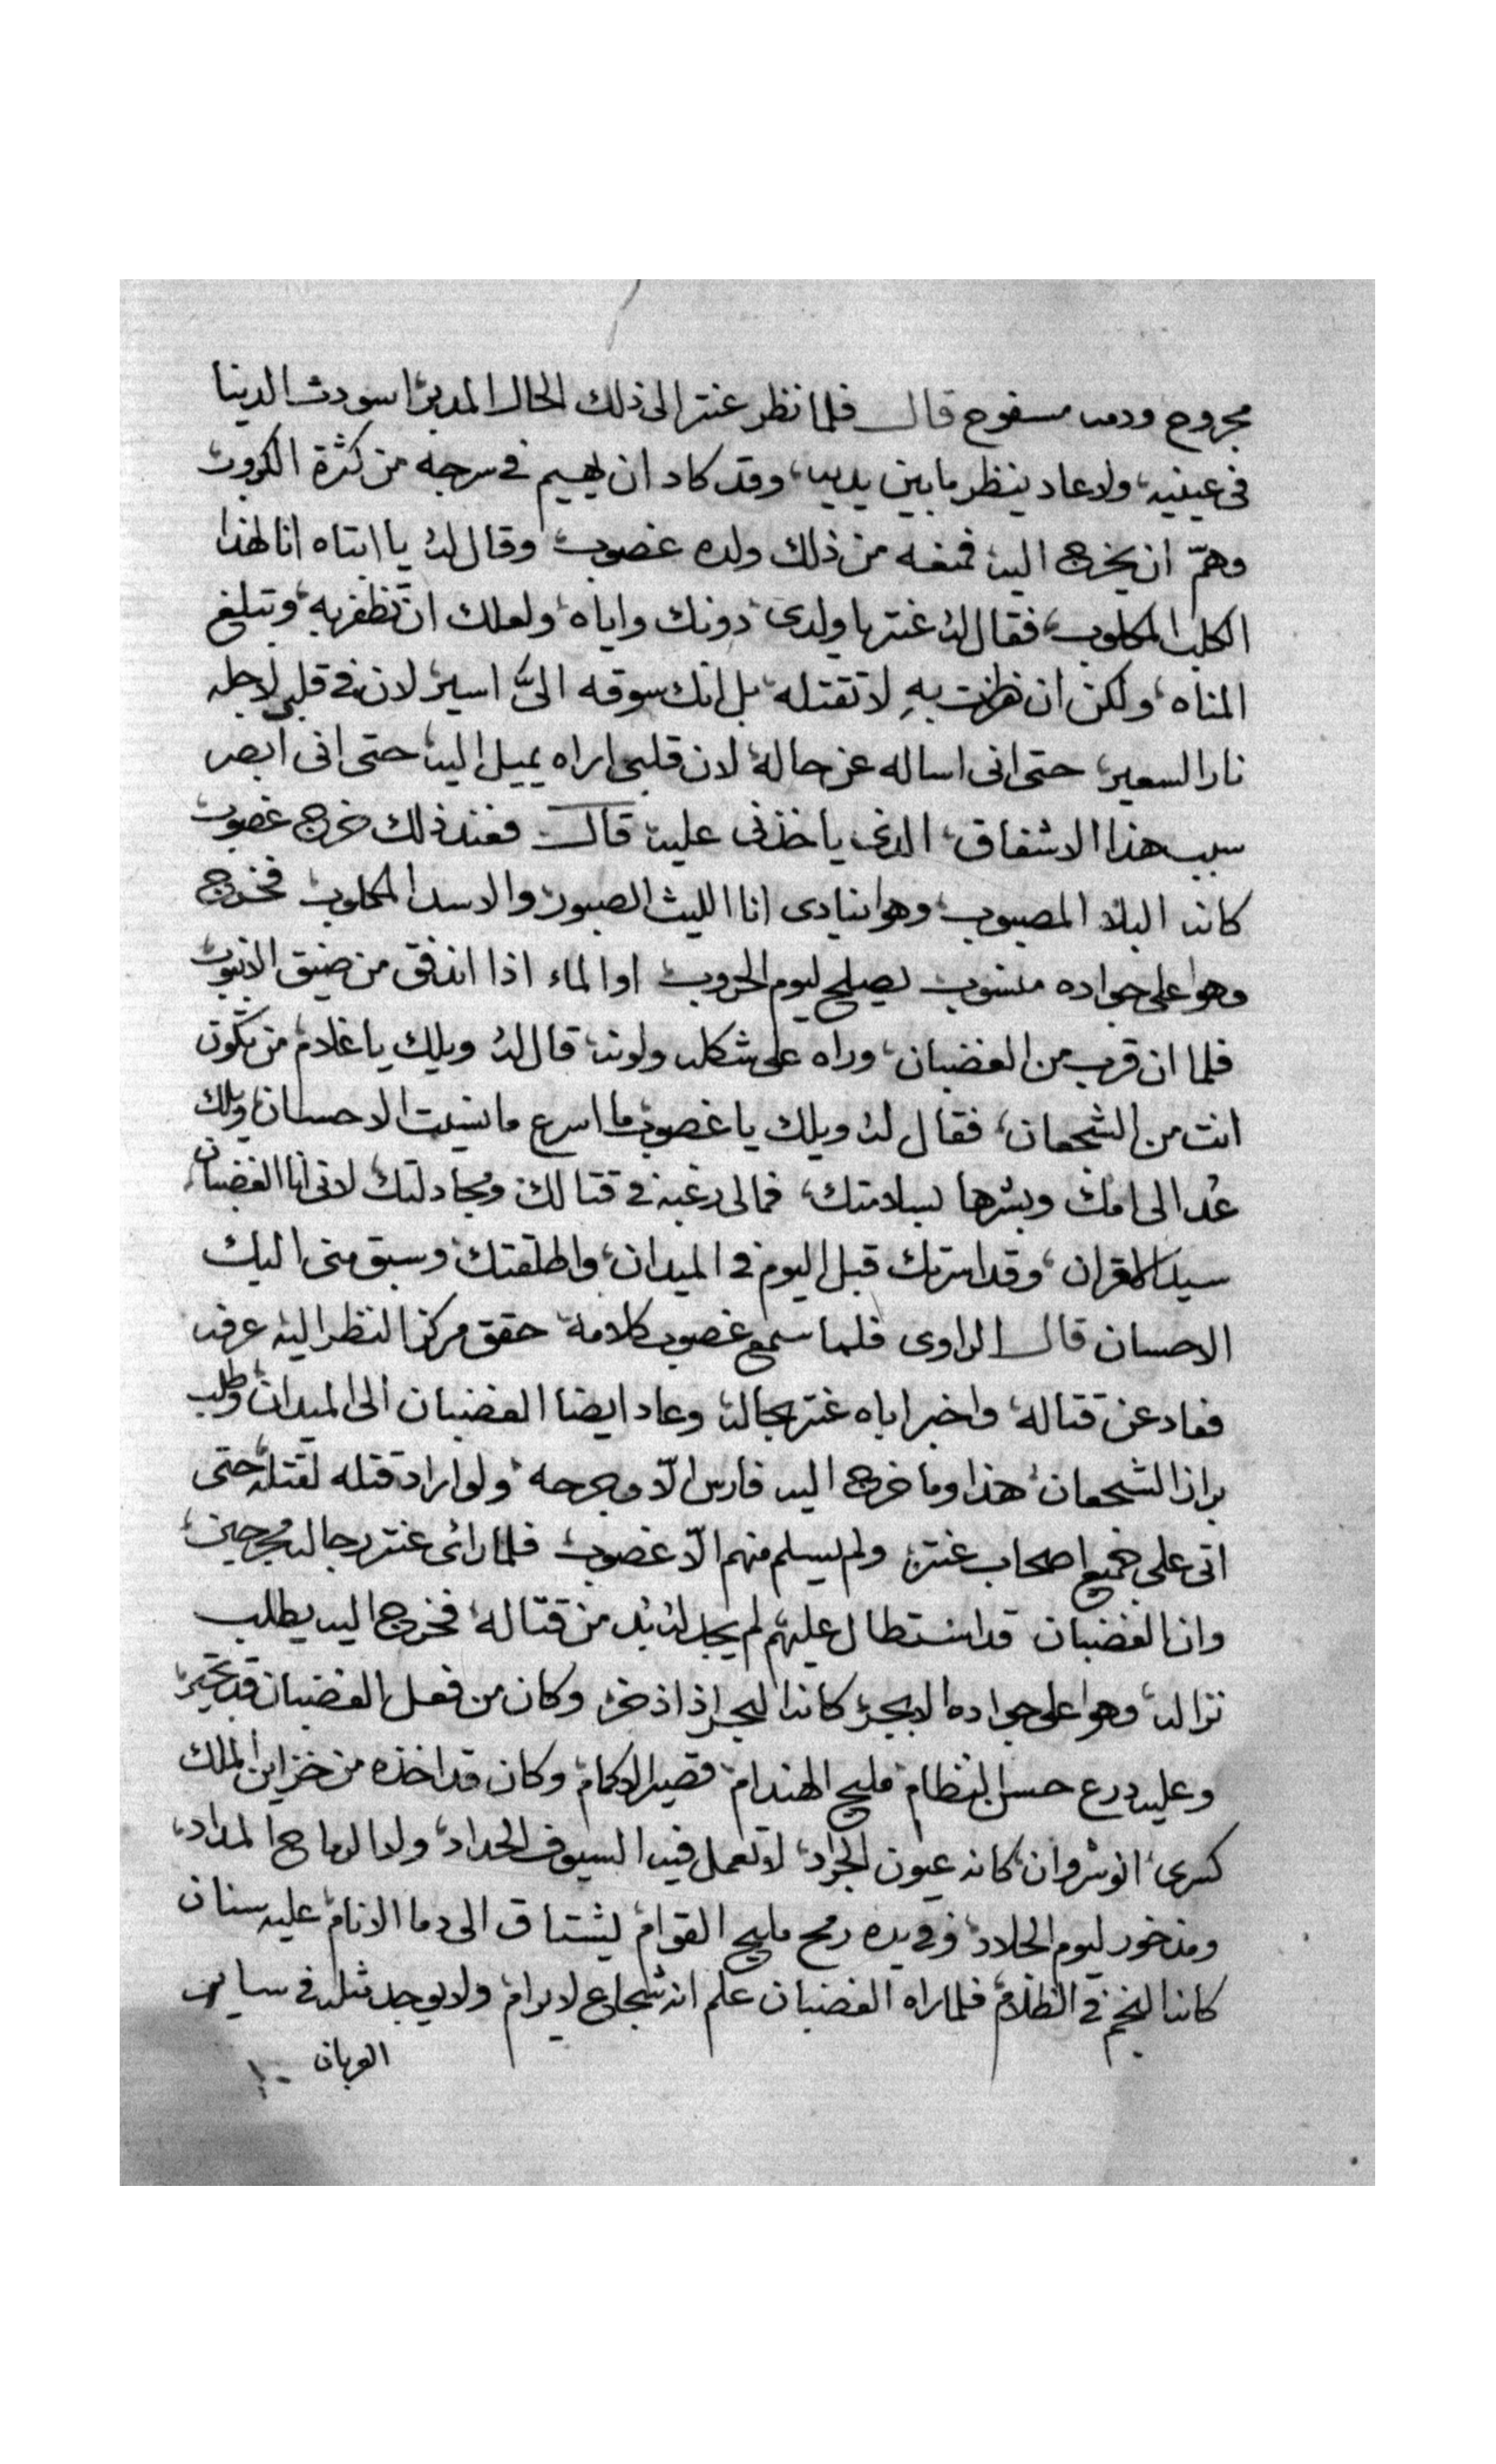 مجروح ودمه مسفوح قال فلما نظر عنتر الى ذلك الحال المدبر اسودت الدنيا
في عينيه، ولا عاد ينظر ما بين يديه، وقد كاد ان يهيم في سرجه من كثرة الكروب
وهمّ ان يخرج اليه فمنعه من ذلك ولده غصوب وقال له يا ابتاه انا لهذا
الكلب المكلوب، فقال له عنتر يا ولدى دونك واياه ولعلك ان تظفر به وتبلغ
المناه ولكن ان ظفرت به لا تقتله بل انك سوقه الىّ اسير لان في قلبي لاجله
نار السعير، حتى انى اساله عن حاله لان قلبي اراه يميل اليه حتى انى ابصر
سبب هذا الاشفاق، الدى ياخذنى عليه قال فعند ذلك خرج غصوب
كانه البلا المصبوب وهوا ينادى انا الليث الصبور والاسد المكلوب فخرج
وهوا على جواده منسوب يصلح ليوم الحروب اوا الماء اذا اندفق من ضيق الانبوب
فلما ان قرب من الغضبان، وراه على شكله ولونه قال له ويلك يا غلام من تكون
انت من الشجعان، فقال له ويلك يا غصوب ما اسرع ما نسيت الاحسان ويلك
عُد الى امك وبشرها بسلامتك، فمالى رغبة في قتالك ومجادلتك لانى انا الغضبان
سيد الاقران، وقد اسرتك قبل اليوم في الميدان، واطلقتك وسبق منى اليك
الاحسان قال الراوى فلما سمع غصوب كلامه حقق مركز النظر اليه عرفه
فعاد عن قتاله واخبر اباه عنتر بحاله وعاد ايضا الغضبان الى الميدان وطلب
براز الشجعان هذا وما خرج اليه فارس الّا وجرحه ولو اراد قتله لقتله حتى
اتى على جميع اصحاب عنتر ولم يسلم منهم الّا غصوب فلما رائى عنتر رجاله مجرحين،
وان الغضبان قد استطال عليهم لم يجد له بُد من قتاله فخرج اليه يطلب
نزاله، وهوا على جواده الابجر كانه البحر اذا ذخر وكان من فعل الغضبان قد تحير،
وعليه درع حسن النظام مليح الهندام قصير الاكمام وكان قد اخذه من خزاين الملك
كسرى انوشروان كانه عيون الجراد لا تعمل فيه السيوف الحداد، ولا الرماح المداد،
ومذخور ليوم الجلاد وفى يده رمح مليح القوام يشتاق الى دما الانام عليه سنان
كانه النجم في الظلام فلما راه الغضبان علم انه شجاع لا يرام ولا يوجد مثله في ساير
العربان